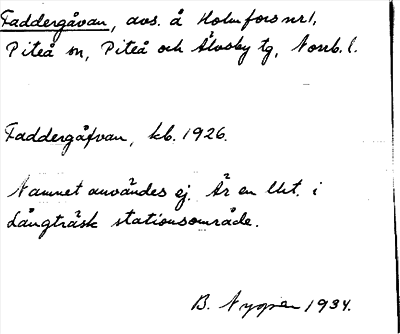 Faddergåvan, avs. å Holmfors nr 1,
Piteå sn, Piteå och Älvsby tg, Norrb. l.
Faddergåfvan, kb. 1926.
Namnet användes ej. Är en lht. i
Långträsk stationsområde.
B. Nyqper 1934.